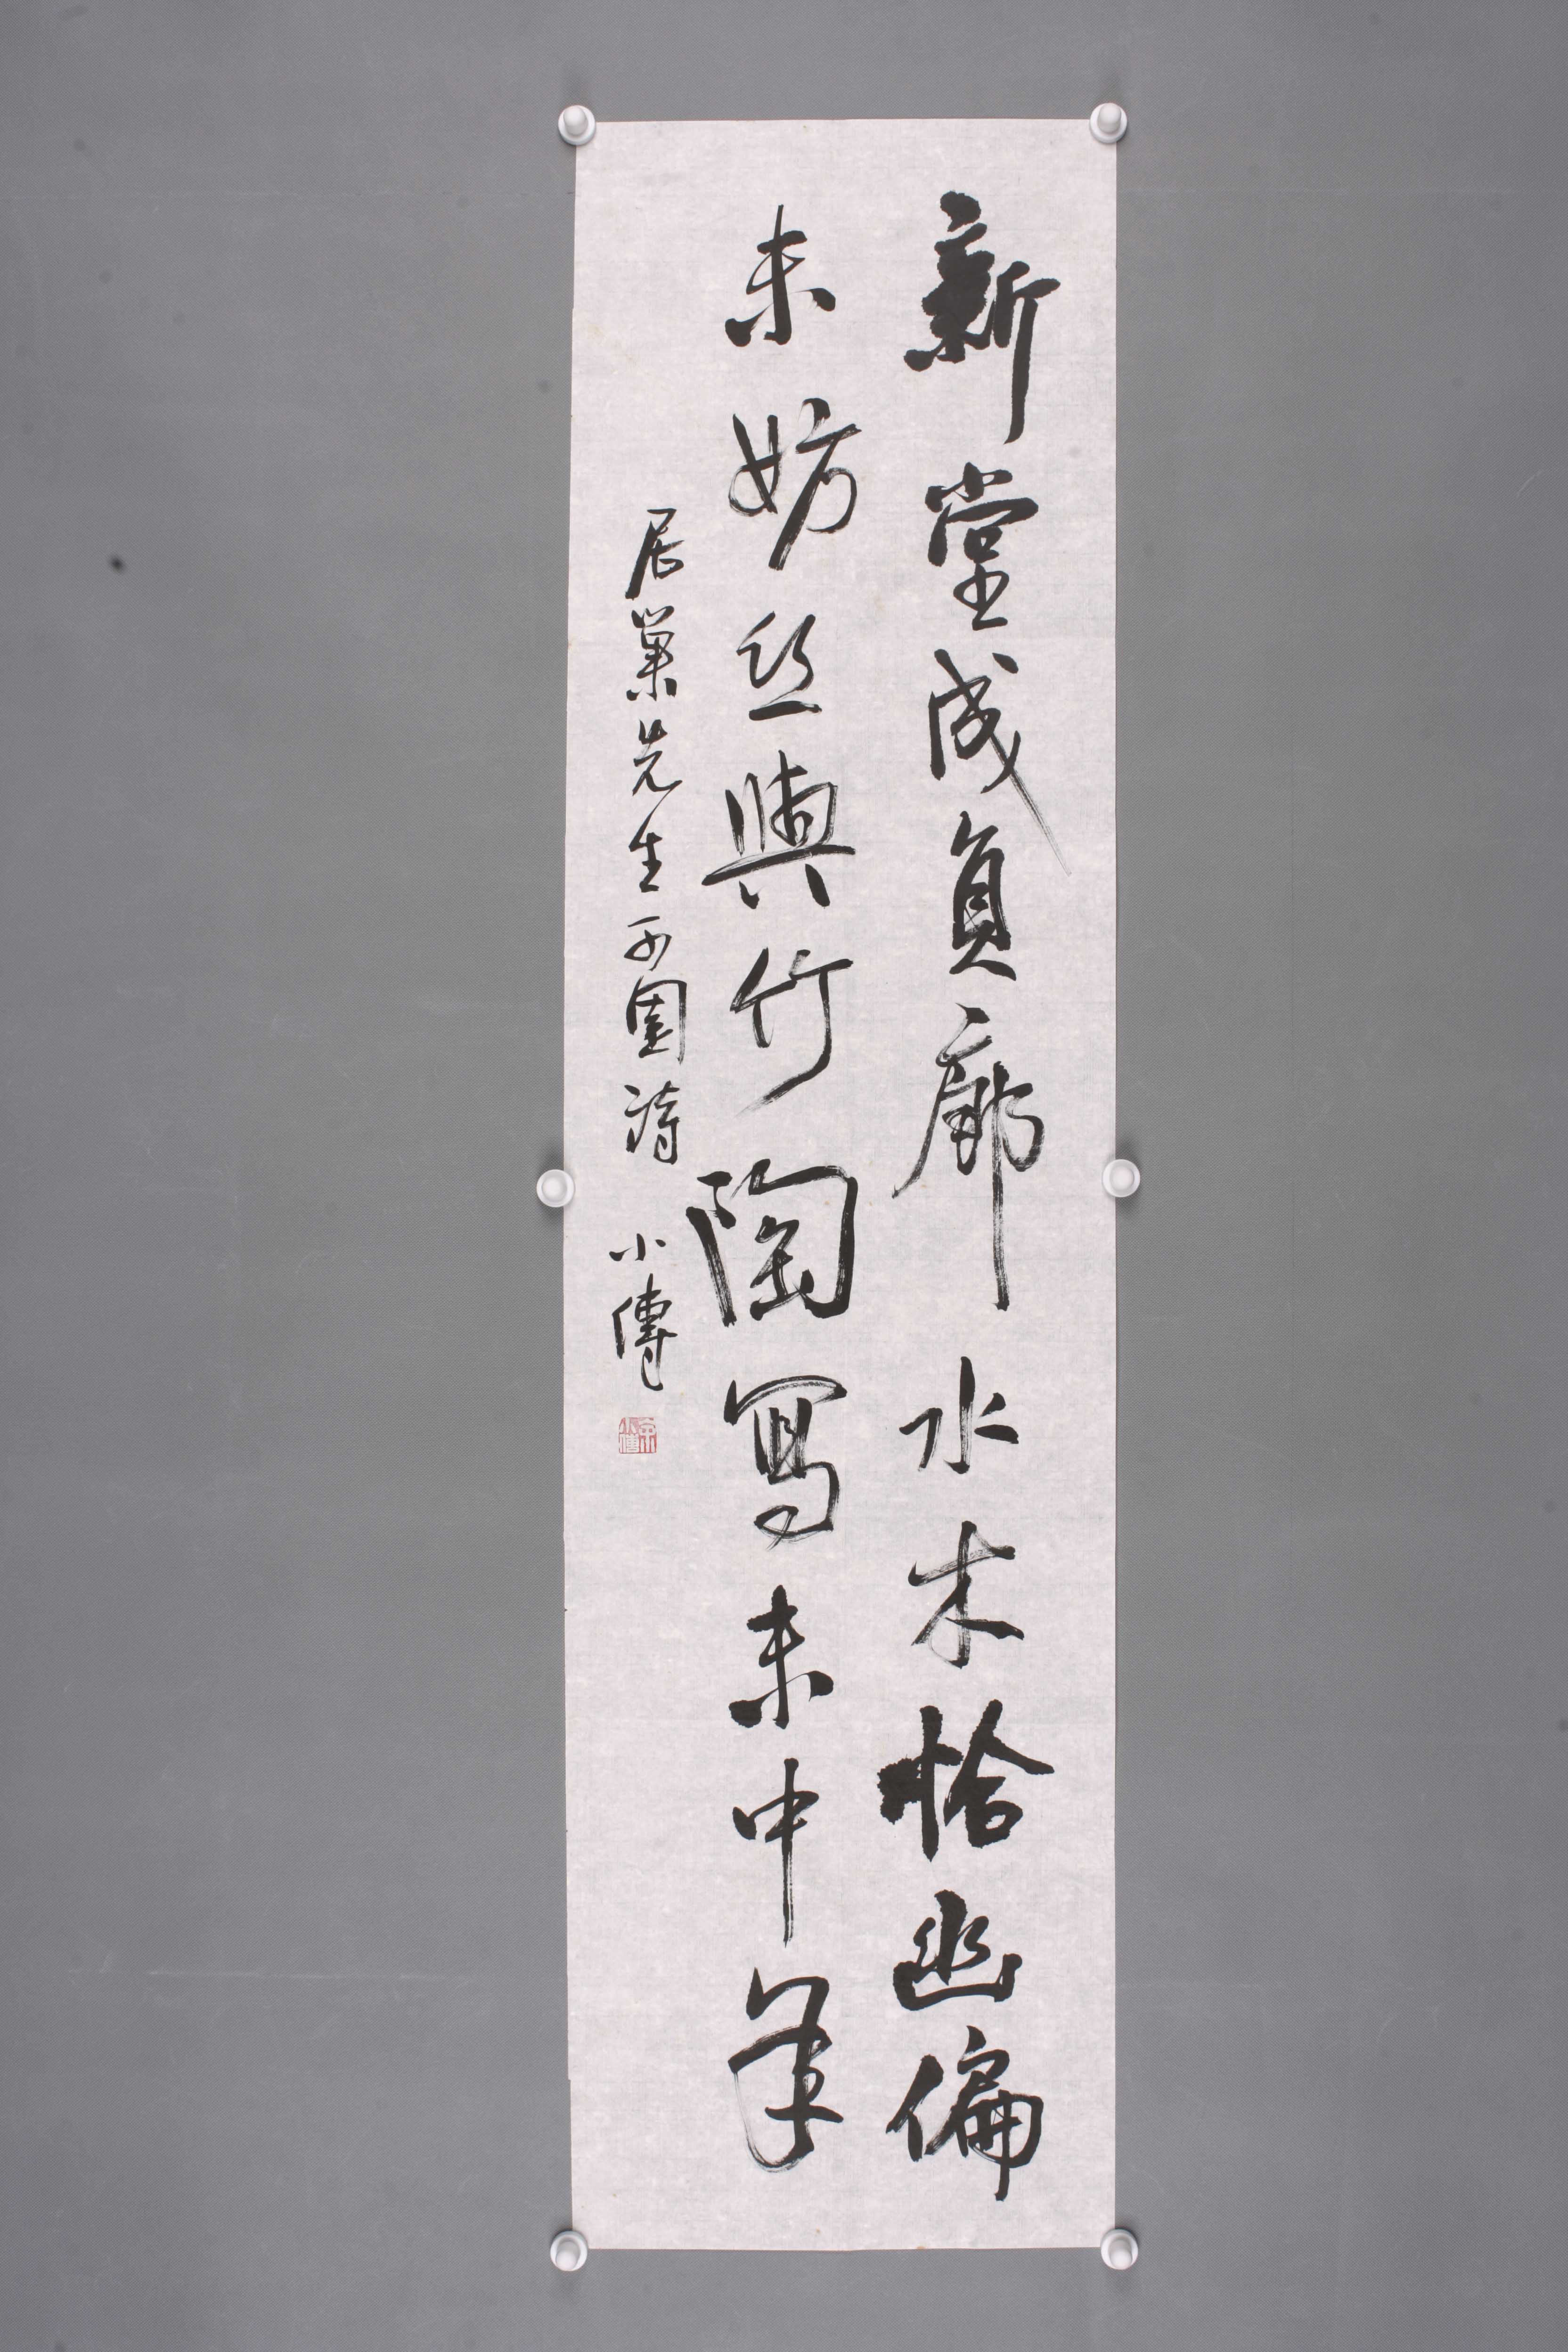 新堂成負廓水木恰幽偏
未妨絲與竹陶寫未中年
居巢先生可園詩 小傳